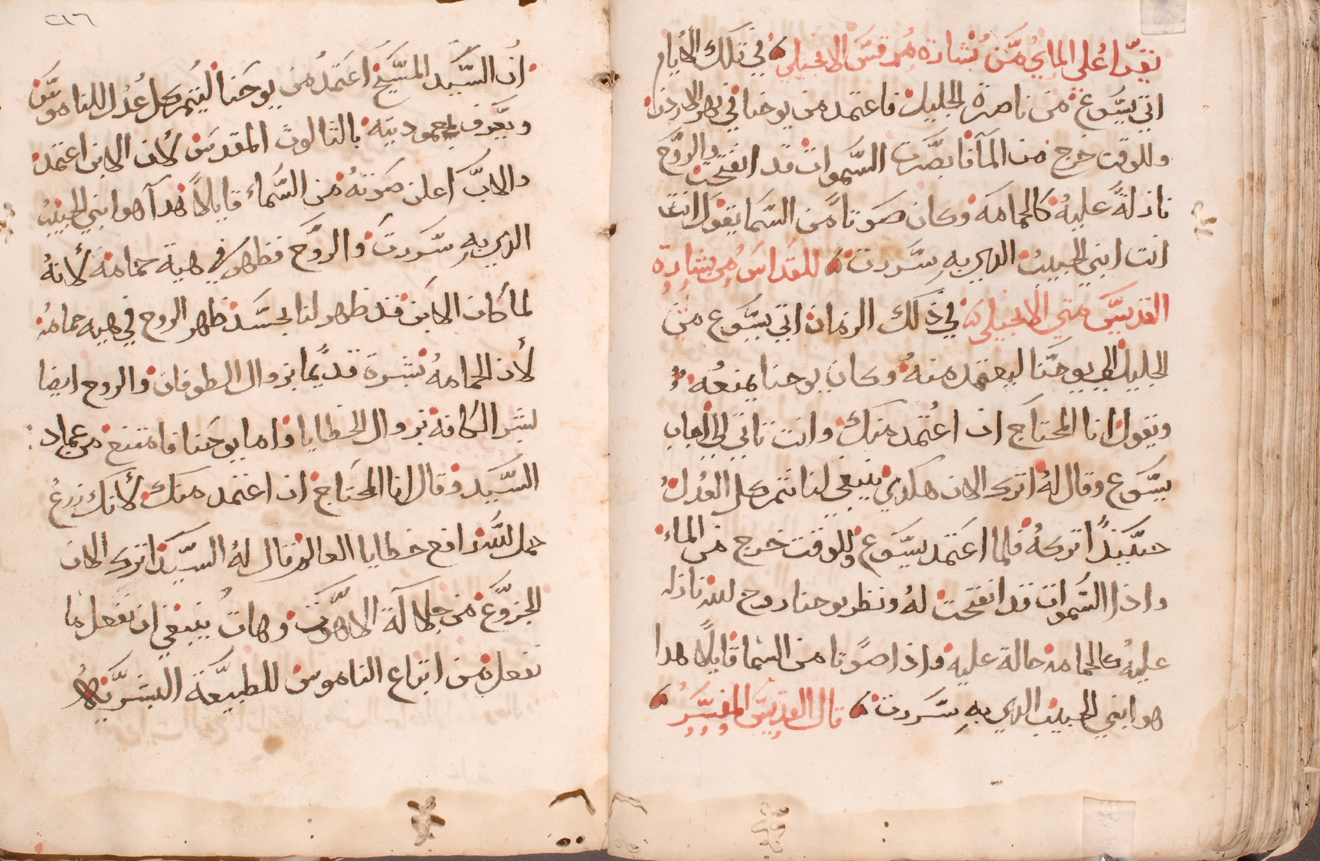 تقرا على الماي من بشارة مرقس الانجيلي في تلك الايام
اتي يسوع من ناصرة الجليل فاعتمد من يوحنا في نهر الاردن
وللوقت خرج من المآ فابصر السموات قد انفتحت والروح
نازلة عليه كالحمامه وكان صوتا من السما يقول انت
انت ابني الحبيب الدي به سررت للقداس من بشارة
القديس متي الانجيلي في ذلك الزمان اتي يسوع من
الجليل الي يوحنا ليعتمد منه وكان يوحنا يمنعه
ويقول انا المحتاج ان اعتمد منك وانت تاتي الي فاجاب
يسوع وقال له اترك الان هكدي ينبغي لنا نتم كل العدل
حينيذ اتركه فلما اعتمد يسوع وللوقت خرج من الماء
واذا السموات قد انفتحت له ونظر يوحنا روح الله نازله
عليه كالحمامه حالة عليه واذا صوتا من السما قايلا هدا
هو ابني الحبيب الدي به سررت قال القديس المفسر
ان السيد المسيح اعتمد من يوحنا ليتم كل عدل لنا موس
ويعرف بمعموديته بالتالوث المقدس لان الابن اعتمد
والاب اعلن صوته من السماء قايلا هدا هو ابني الحبيب
الدي به سررت والروح فظهر في هية حمامه لانه
لما كان الابن قد ظهر لنا بجسد ظهر الروح في هيه حمامه
لأن الحمامه بشرة قديما بزوال الطوفان والروح ايضا
بشر الكافة بزوال الخطايا واما يوحنا فامتنع من عماد
السيد وقال انا المحتاج ان اعتمد منك لأنك
حمل الله رافع خطايا العالم قال له السيد اترك الان
الجزوع من جلالة الاهوت وهات ينبغي ان نفعل ما
نفعل من اتباع الناموس للطبيعة البشرية
٢١٦